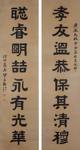 孝友溫恭保其清穆
聰睿明喆永有光華